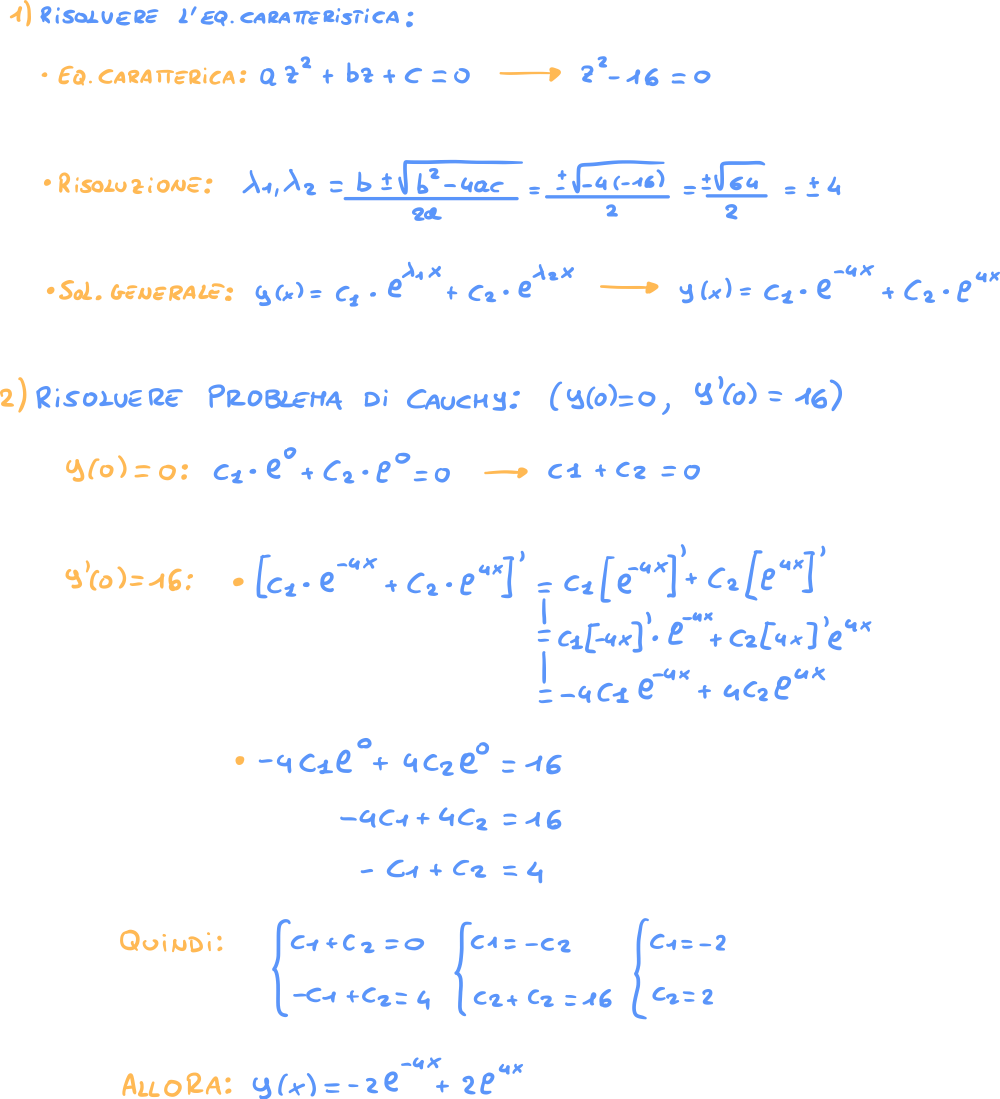 1) RISOLVERE L'EQ. CARATTERISTICA:
• EQ. CARATTERICA: az² + bz + c = 0 → z² - 16 = 0
• RISOLUZIONE: λ1, λ2 = (b ± √(b² - 4ac))/2a = (± √(-4(-16)))/2 = (±√64)/2 = ± 4
• SOL. GENERALE: y(x) = c1 · e^(λ1x) + c2 · e^(λ2x) → y(x) = c1 · e^(-4x) + c2 · e^(4x)
2) RISOLVERE PROBLEMA DI CAUCHY: (y(0)=0, y'(0) = 16)
y(0) = 0: c1 · e^0 + c2 · e^0 = 0 → c1 + c2 = 0
y'(0) = 16: • [c1 · e^(-4x) + c2 · e^(4x)]' = c1[e^(-4x)]' + c2[e^(4x)]'
= c1[-4x]' · e^(-4x) + c2[4x]' e^(4x)
= -4c1 e^(-4x) + 4c2 e^(4x)
• -4c1e^0 + 4c2e^0 = 16
-4c1 + 4c2 = 16
- c1 + c2 = 4
QUINDI: { c1 + c2 = 0 { c1 = -c2 { c1 = -2
-c1 + c2 = 4 c2 + c2 = 16 c2 = 2
ALLORA: y(x) = -2e^(-4x) + 2e^(4x)